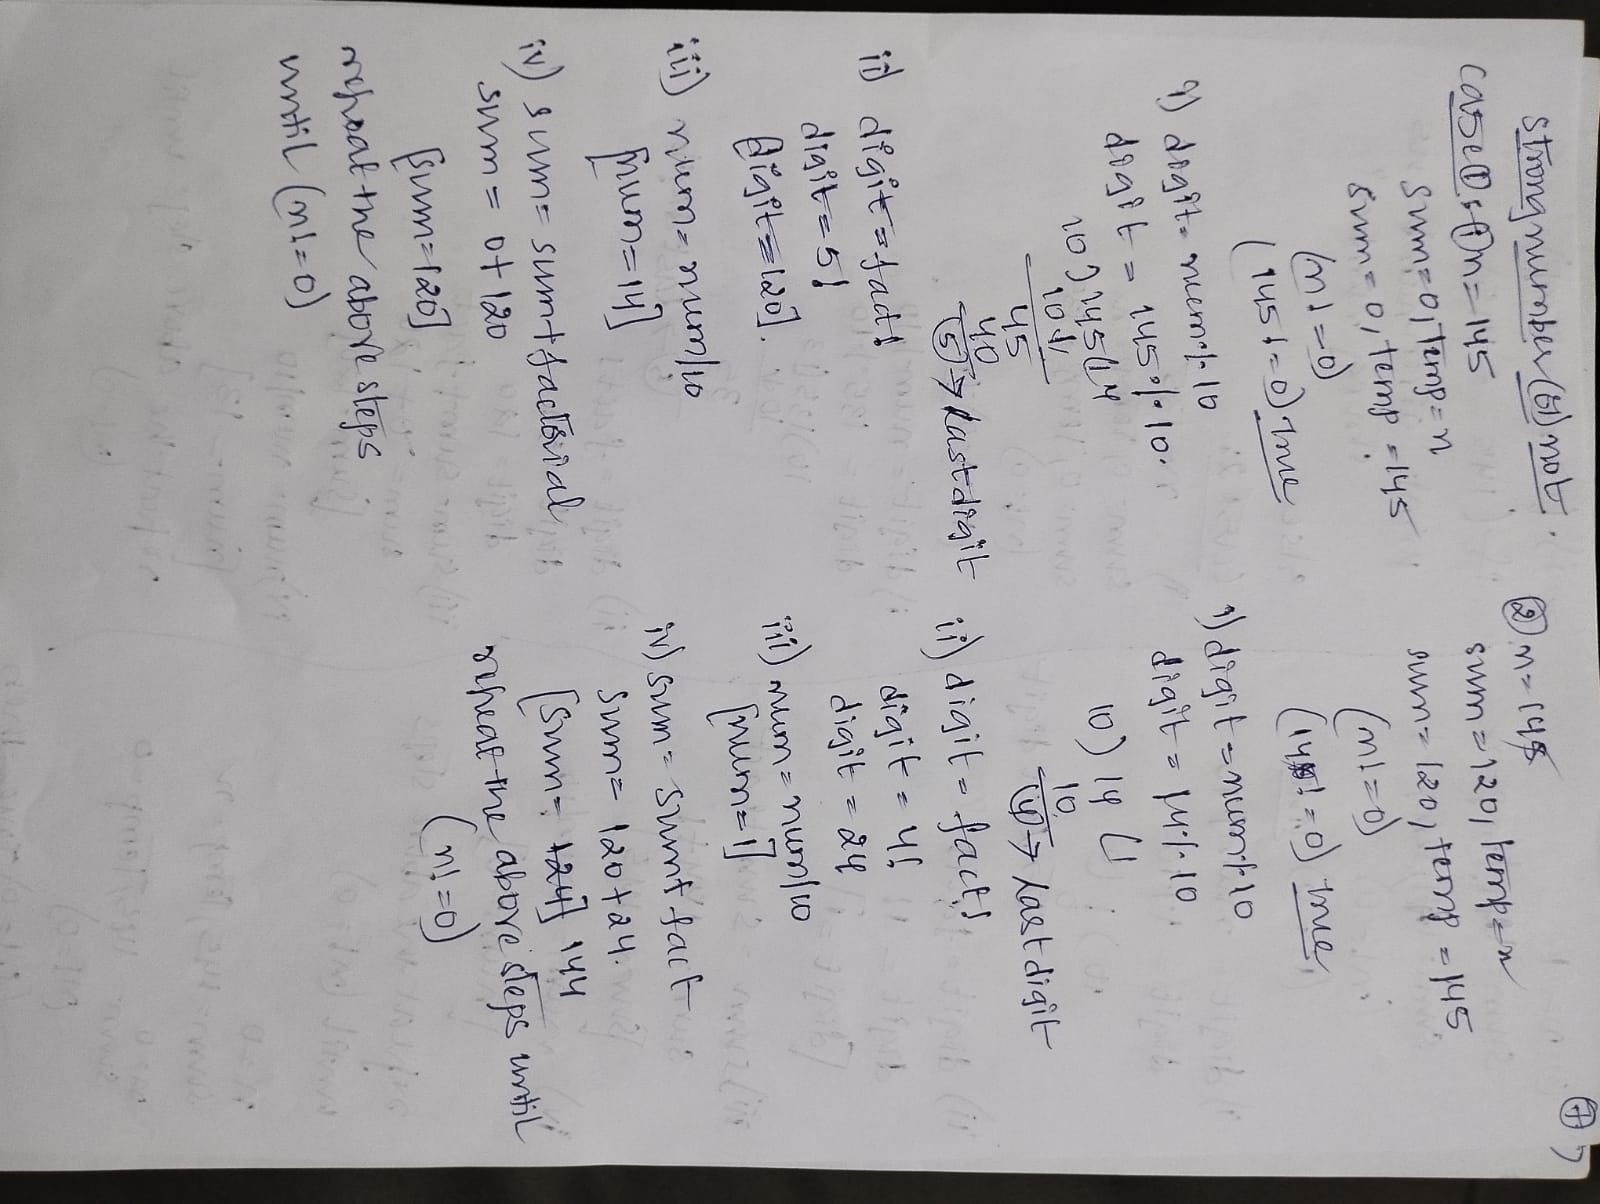 7
strong number (or) not.
case①:① n=145
sum=0, Temp=n
sum=0, temp=145
(n!=0)
(145!=0) True
i) digit=num%10
digit=145%10.
10) 145 (14
10↓
45
40
5 → Last digit
ii) digit=fact!
digit=5!
[digit=120].
iii) num=num/10
[num=14]
iv) sum=sum+factorial
sum=0+120
[sum=120]
repeat the above steps
until (n!=0)
② n=145
sum=120, temp=n
sum=120, temp=145
(n!=0)
(14!=0) True
i) digit=num%10
digit=14%10
10) 14 (1
10
4 → Last digit
ii) digit=fact!
digit=4!
digit=24
iii) num=num/10
[num=1]
iv) sum=sum+fact
sum=120+24.
[sum=124] 144
repeat the above steps until
(n!=0)